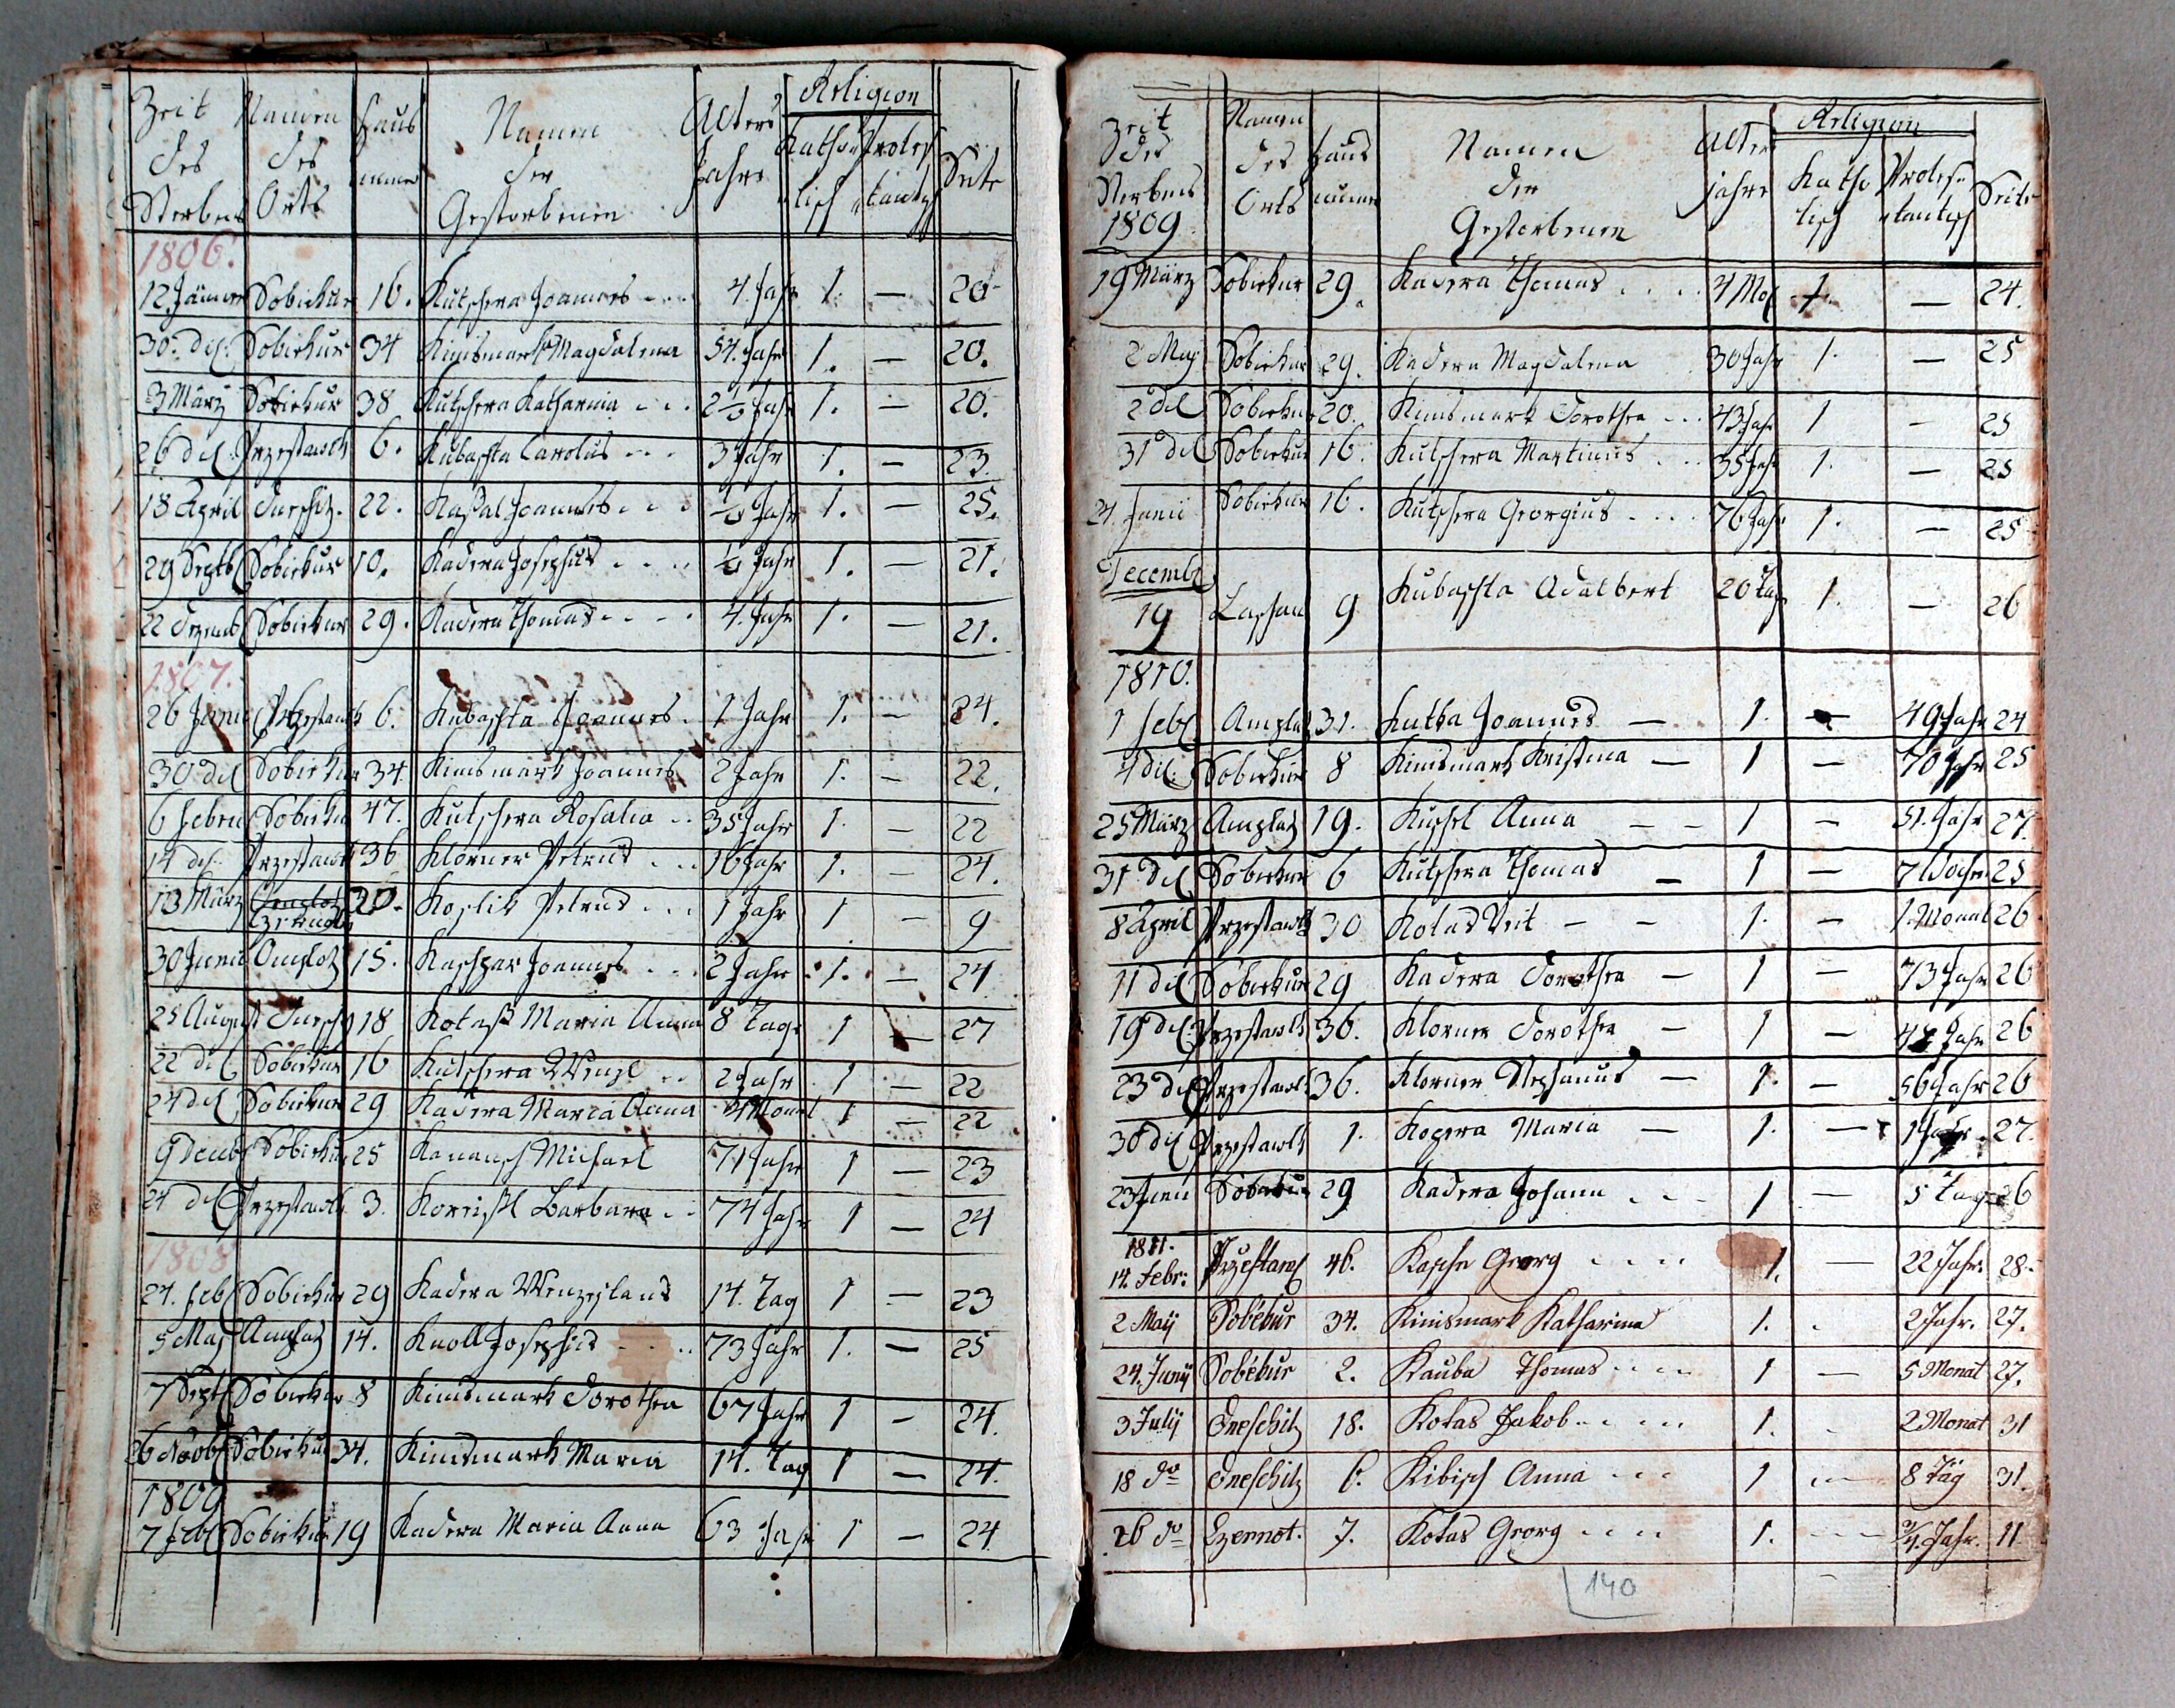 Zeit des Sterbens | Namen des Orts | Haus numer | Namen der Gestorbenen | Alters Jahre | Religion Katholisch | Protestantisch | Seite
1806.
12 Jänner Sobiekur 16. Kutschera Joannes 4. Jahr 1. — 20
30. dil: Sobiekur 34 Kinismark Magdalena 54. Jahr 1. — 20.
3 März Sobiekur 38 Kutschera Katharina 2 1/2 Jahr 1. — 20.
26 dil Przestawlk 6. Kubaschta Carolus 3 Jahr 1. — 23
18 April 22. Kaßal Joannes Jahr 1. — 25.
29 Septb Sobiekur 10. Kadera Josephus Jahr 1. — 21.
22 Dezemb Sobiekur 29. Kadera Thomas 4. Jahr 1. — 21.
1807.
26 Przestawlk 6. Kubaschta Joannes 1 Jahr 1. — 24.
30 dil Sobiekur 34. Kinismark Joannes 2 Jahr 1. — 22.
6 Febru Sobiekur 47. Kutschera Rosalia 35 Jahr 1. — 22
14 dil Przestawlk 36 Klorner Petrus 16 Jahr 1. — 24.
13 März 20. Koslik Petrus 1 Jahr 1 — 9
30 Junii Amplatz 15. Kaschpar Joannes 2 Jahr 1. — 24
25 August 18 Kotaß Maria Anna 8 Tage 1 — 27
22 dil Sobiekur 16 Kutschera Wenzl 2 Jahr 1 — 22
24 dil Sobiekur 29 Kadera Maria Anna 4 Monat 1 — 22
9 Decemb Sobiekur 25 Michael 71 Jahr 1 — 23
24 dil Przestawlk 3. Barbara 74 Jahr 1 — 24
1808
24. Feb Sobiekur 29 Kadera Wenzeslaus 14. Tag 1 — 23
5 Maj Amplatz 14. Knoll Josephus 73 Jahr 1. — 25
7 Sept Sobiekur 8 Kinismark Dorothea 67 Jahr 1 — 24.
26 Novb Sobiekur 34. Kinismark Maria 14. Tag 1 — 24.
1809
7 Feb Sobiekur 19 Kadera Maria Anna 63 Jahr 1 — 24
Zeit des Sterbens | Namen des Orts | Haus numer | Namen der Gestorbenen | Alter jahre | Religion Katholisch | Protestantisch | Seite
1809
19 März Sobiekur 29. Kadera Thomas 4 Mo 1. — 24.
2 May Sobiekur 29. Kadera Magdalena 30 Jahr 1. — 25
2 dil Sobiekur 20. Kinismark Dorothea 43 Jahr 1 — 25
31 dil Sobiekur 16. Kutschera Martinus 35 Jahr 1. — 25
24. Junii Sobiekur 16. Kutschera Georgius 76 Jahr 1. — 25
Decemb
19 Laschau 9 Kubaschta Adalbert 20 Tag 1. — 26
1810.
1 Feb Amplatz 31. Joannes — 1. — 49 Jahr 24
4 dil. Sobiekur 8 Kinismark Kristina — 1 — 70 Jahr 25
25 März Amplatz 19. Anna — — 1 — 51. Jahr 27.
31 dil Sobiekur 6 Kutschera Thomas — 1 — 7 Woche 25
8 April Przestawlk 30 Kotas Veit — — 1. — 1. Monat 26.
11 dil Sobiekur 29 Kadera Dorothea — 1 — 73 Jahr 26
19 dil Przestawlk 36. Klorner Dorothea — 1 — Jahr 26
23 dil Przestawlk 36. Klorner Stephanus — 1. — 56 Jahr 26
30 dil Przestawlk 1. Kopera Maria — 1. — 27.
23 Junii Sobiekur 29 Kadera Johann 1 — 5 Tage 26
1811.
14. Febr: Przestawl 46. Georg 1. — 22 Jahr. 28.
2 Maÿ Soběkur 34. Kinismark Katharina 1. 2 Jahr. 27.
24. Junÿ Soběkur 2. Kauba Thomas 1 — 5 Monat 27.
3 Julÿ Dneschitz 18. Kotas Jakob 1. 2 Monat 31
18 do Dneschitz 6. Kibisch Anna 1 — 8 Täg 31.
26 do Czernot. 7. Kotas Georg 1. — 3/4. Jahr. 11
140